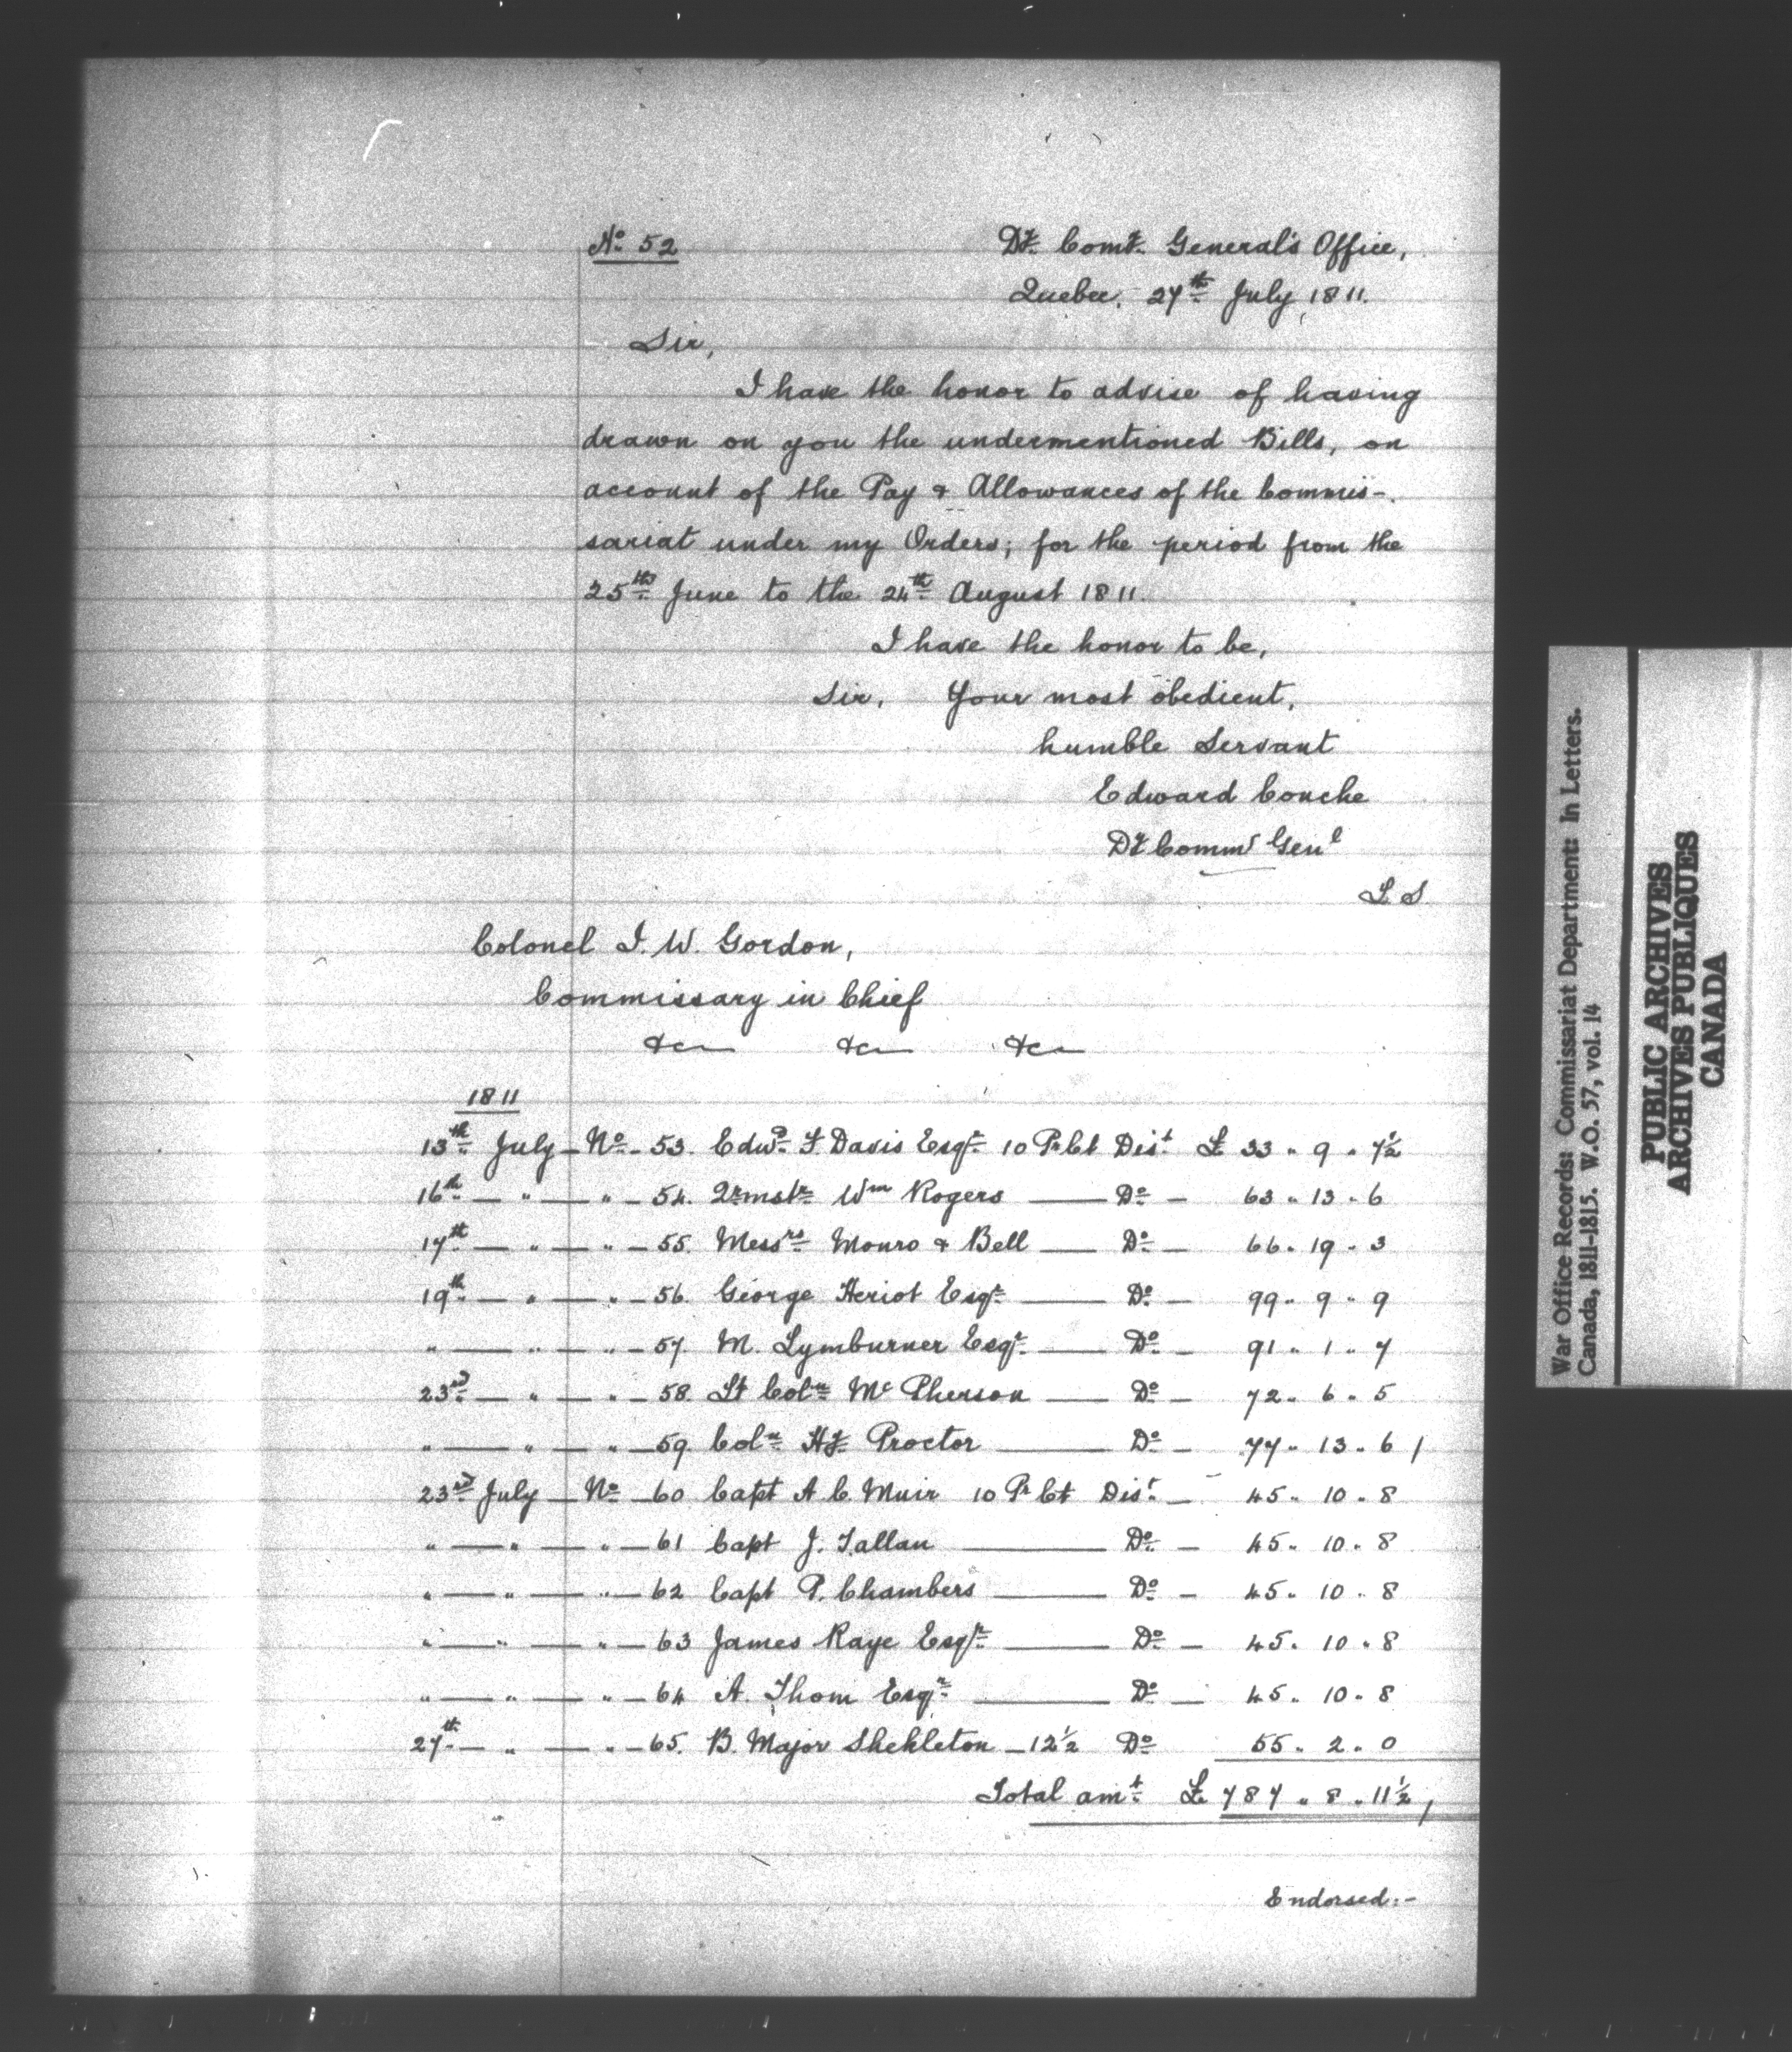 No. 52
Dy. Comy. General's Office,
Quebec, 27th July, 1811.
Sir,
I have the honor to advise of having
drawn on you the undermentioned Bills, on
account of the Pay & Allowances of the Commis-
sariat under my Orders; for the period from the
25th June to the 24th August 1811.
I have the honor to be,
Sir, Your most obedient,
humble Servant
Edward Couche
Dy Commy Genl
L. S
Colonel J. W. Gordon,
Commissary in Chief
&c &c &c
1811
13th July - No - 53. Edwd. F. Davis Esqr. 10 Pr Ct Dist. £ 33 " 9 " 7½
16th — " — " — 54. Qrmstr. Wm Rogers — Do — 63 " 13 " 6
17th — " — " — 55. Messrs. Monro & Bell — Do — 66 " 19 " 3
19th — " — " — 56. George Heriot Esqr. — Do — 99 " 9 " 9
" — " — " — 57. M. Lymburner Esqr. — Do — 91 " 1 " 7
23rd — " — " — 58. Lt Coln Mc Pherson — Do — 72 " 6 " 5
" — " — " — 59. Coln Hy. Proctor — Do — 77 " 13 " 6
23rd July — No — 60 Capt A. C. Muir 10 Pr Ct Dist. — 45 " 10 " 8
" — " — " — 61 Capt J. Tallan — Do — 45 " 10 " 8
" — " — " — 62 Capt P. Chambers — Do — 45 " 10 " 8
" — " — " — 63 James Kaye Esqr. — Do — 45 " 10 " 8
" — " — " — 64 A. Thom Esqr. — Do — 45 " 10 " 8
27th — " — " — 65. B. Major Shekleton — 12½ Do 55 " 2 " 0
Total amt. £ 787 " 8 " 11½
Endorsed:-
War Office Records: Commissariat Department: In Letters.
Canada, 1811-1815. W.O. 57, vol. 14
PUBLIC ARCHIVES
ARCHIVES PUBLIQUES
CANADA